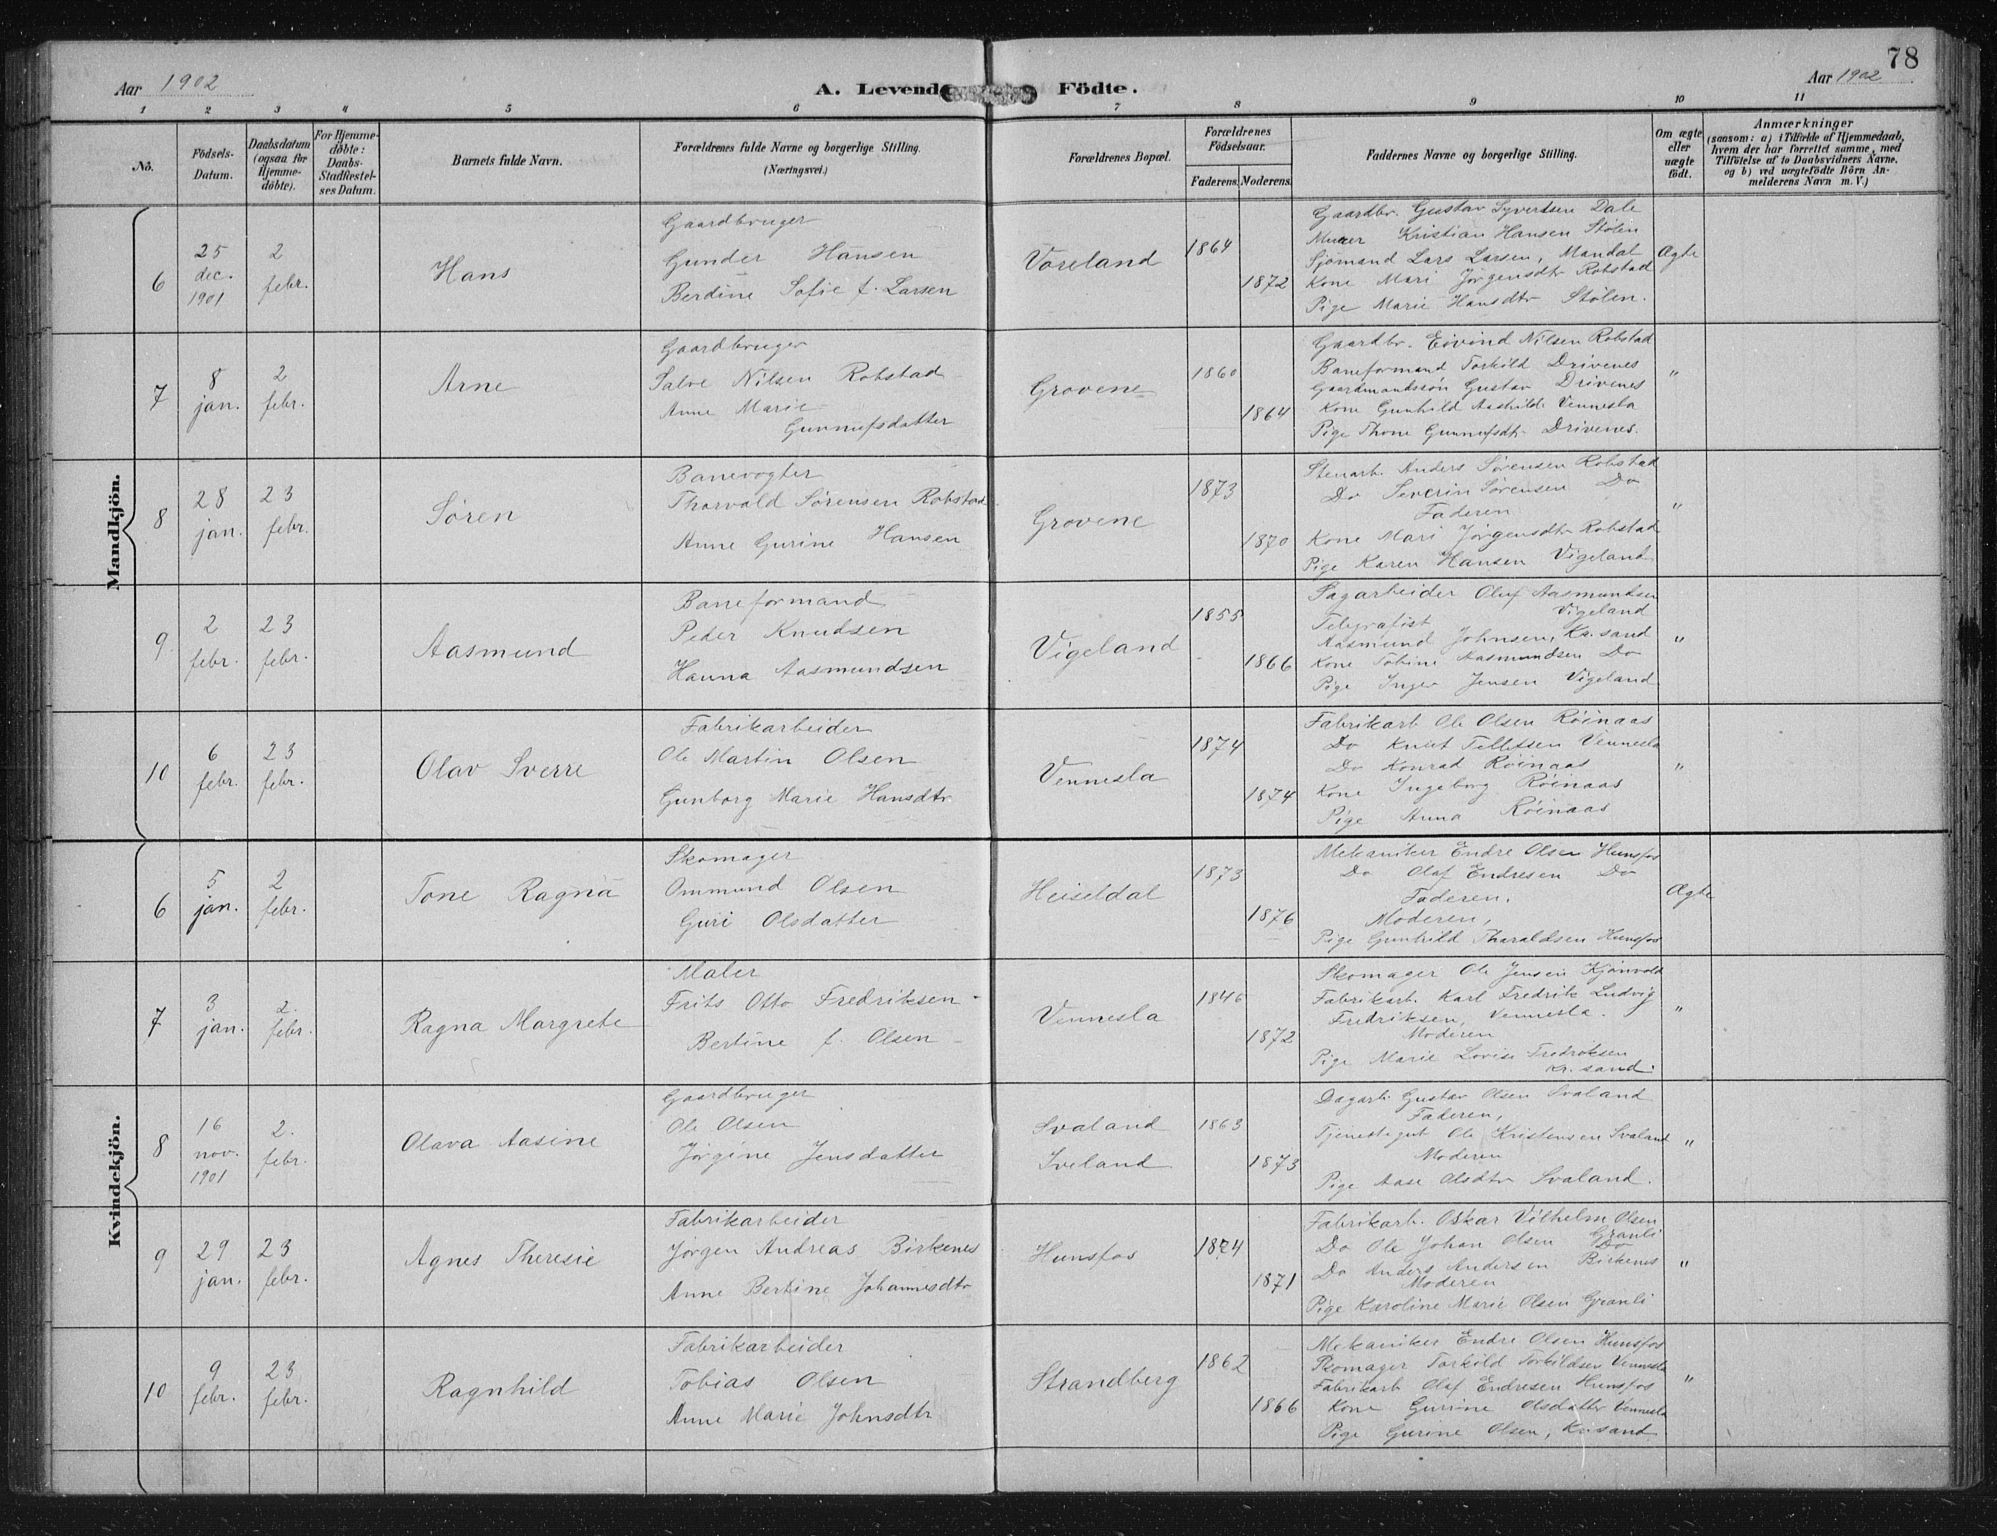 78
Aar 1902
A. Levende Födte.
Aar 1902
1 2 3 4 5 6 7 8 9 10 11
No.
Födsels-Datum.
Daabsdatum (ogsaa for Hjemme-döbte).
For Hjemme-döbte: Daabs-Stadfæstel-ses Datum.
Barnets fulde Navn.
Forældrenes fulde Navne og borgerlige Stilling.
(Næringsvei.)
Forældrenes Bopæl.
Forældrenes Födselsaar.
Faderens. Moderens.
Faddernes Navne og borgerlige Stilling.
Om ægte eller uægte födt.
Anmærkninger
(saasom: a) i Tilfælde af Hjemmedaab,
hvem der har forrettet samme, med
Tilföielse af to Daabsvidners Navne,
og b) ved uægtefödte Börn An-
melderens Navn m. V.)
Mandkjön.
6
25 dec. 1901
2 febr.
Hans
Gaardbruger
Gunder Hansen
Berdine Sofie f. Larsen
Voreland
1864
1872
Gaardbr. Gustav Syvertsen Dale
Murer Kristian Hansen Stølen
Sjømand Lars Larsen, Mandal
Kone Mari Jørgensdtr Robstad
Pige Marie Hansdtr Stølen.
Ægte
7
8 jan.
2 febr.
Arne
Gaardbruger
Salve Nilsen Robstad
Anne Marie
Gunnufsdatter
Grovene
1860
1864
Gaardbr. Eivind Nilsen Robstad
Baneformand Torkild Drivenes
Gaardmandssøn Gustav Drivenes
Kone Gunhild Aashild. Vennesla
Pige Thone Gunnufsdtr Drivenes.
"
8
28 jan.
23 febr.
Søren
Banevogter
Thorvald Sørensen Robstad
Anne Gurine Hansen
Grovene
1873
1870
Stenarb. Anders Sørensen Robstad
Do Severin Sørensen Do
Faderen
Kone Mari Jørgensdtr Robstad
Pige Karen Hansen Vigeland
"
9
2 febr.
23 febr.
Aasmund
Baneformand
Peder Knudsen
Hanna Aasmundsen
Vigeland
1855
1866
Sagarbeider Oluf Aasmundsen
Vigeland
Telegrafist
Aasmund Johnsen, Kr.sand
Kone Tobine Aasmundsen Do
Pige Inger Jensen Vigeland
"
10
6 febr.
23 febr.
Olav Sverre
Fabrikarbeider
Ole Martin Olsen
Gunborg Marie Hansdtr
Vennesla
1874
1874
Fabrikarb. Ole Olsen Røinaas
Do Knut Tellefsen Vennesla
Do Konrad Røinaas
Kone Ingeborg Røinaas
Pige Anna Røinaas
"
Kvindekjön.
6
5 jan.
2 febr.
Tone Ragna
Skomager
Ommund Olsen
Guri Olsdatter
Heiseldal
1873
1876
Mekaniker Endre Olsen Hunsfos
Do Olaf Endresen Do
Faderen.
Moderen,
Pige Gunhild Tharaldsen Hunsfos
Ægte
7
3 jan.
2. febr.
Ragna Margrete
Maler
Frits Otto Fredriksen
Bertine f. Olsen
Vennesla
1846
1872
Skomager Ole Jensen Kjønvold
Fabrikarb. Karl Fredrik Ludvig
Fredriksen, Vennesla.
Moderen
Pige Marie Lovise Fredriksen
Kr.sand.
"
8
16 nov. 1901
2. febr.
Olava Aasine
Gaardbruger
Ole Olsen
Jørgine Jensdatter
Svaland
Iveland
1863
1873
Dagarb. Gustav Olsen Svaland
Faderen,
Tjenestegut Ole Kristensen Svaland
Moderen
Pige Aase Olsdtr Svaland.
"
9
29 jan.
23 febr.
Agnes Theresie
Fabrikarbeider
Jørgen Andreas Birkenes
Anne Bertine Johannesdtr
Hunsfos
1871
Fabrikarb. Oskar Vilhelm Olsen
Granli
Do Ole Johan Olsen Do
Do Anders Andersen Birkenes
Moderen
Pige Karoline Marie Olsen Granli
"
10
9 febr.
23 febr.
Ragnhild
Fabrikarbeider
Tobias Olsen
Anne Marie Johnsdtr
Strandberg
1862
1866
Mekaniker Endre Olsen Hunsfos
Skomager Torkild Torkildsen Vennesla
Fabrikarb Olaf Endresen Hunsfos
Kone Gurine Olsdatter Vennesla
Pige Gurine Olsen, Kr.sand
"